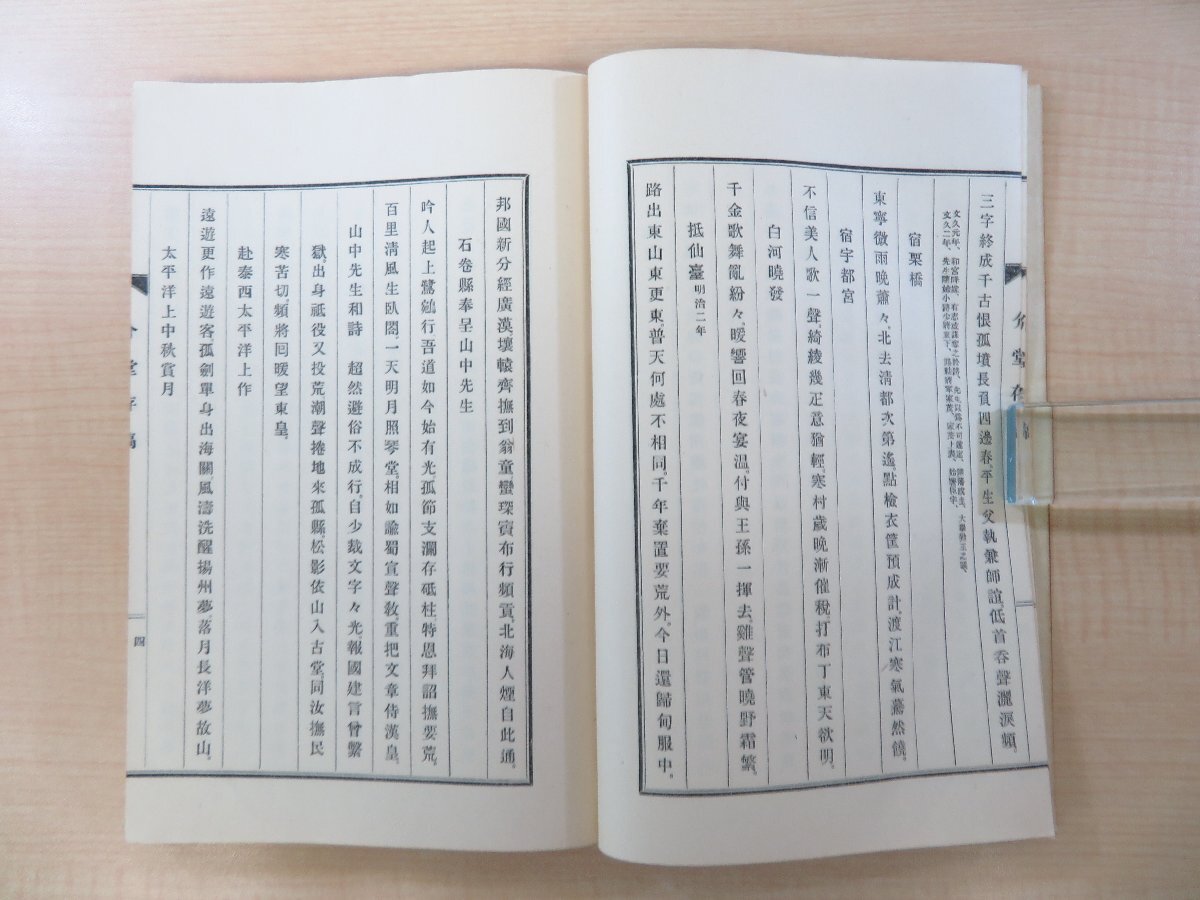 三字終成千古恨孤墳長負四邊春、平生父執兼師誼、低首呑聲灑淚頻。
文久元年、和宮降嫁、有志或謀奪之於路、先生以爲不可
文久二年、先生
宿栗橋
東寧微雨晚蕭々、北去淸都次第遙、點檢衣筐預成計、渡江寒氣驀然饒。
宿宇都宮
不信美人歌一聲、綺綾幾疋意猶輕、寒村歲晚漸催稅、打布丁東天欲明。
白河曉發
千金歌舞亂紛々、暖響回春夜宴溫、付與王孫一揮去、雞聲管曉野霜繁。
抵仙臺明治二年
路出東山東更東、普天何處不相同、千年棄置要荒外、今日還歸甸服中。
邦國新分經廣漠壤轅齊撫到翁童、蠻琛賨布行頻貢、北海人煙自此通。
石卷縣奉呈山中先生
吟人起上鷺鷀行、吾道如今始有光、孤節支瀾存砥柱、特恩拜詔撫要荒。
百里淸風生臥閣、一天明月照琴堂、相如諭蜀宣聲敎、重把文章侍漢皇。
山中先生和詩　超然避俗不成行、自少裁文字々光、報國建言曾繫
獄、出身祗役又投荒、潮聲捲地來孤縣、松影依山入古堂、同汝撫民
寒苦切、頻將囘暖望東皇。
赴泰西太平洋上作
遠遊更作遠遊客、孤劍單身出海關、風濤洗醒揚州夢、落月長洋夢故山。
太平洋上中秋賞月
四